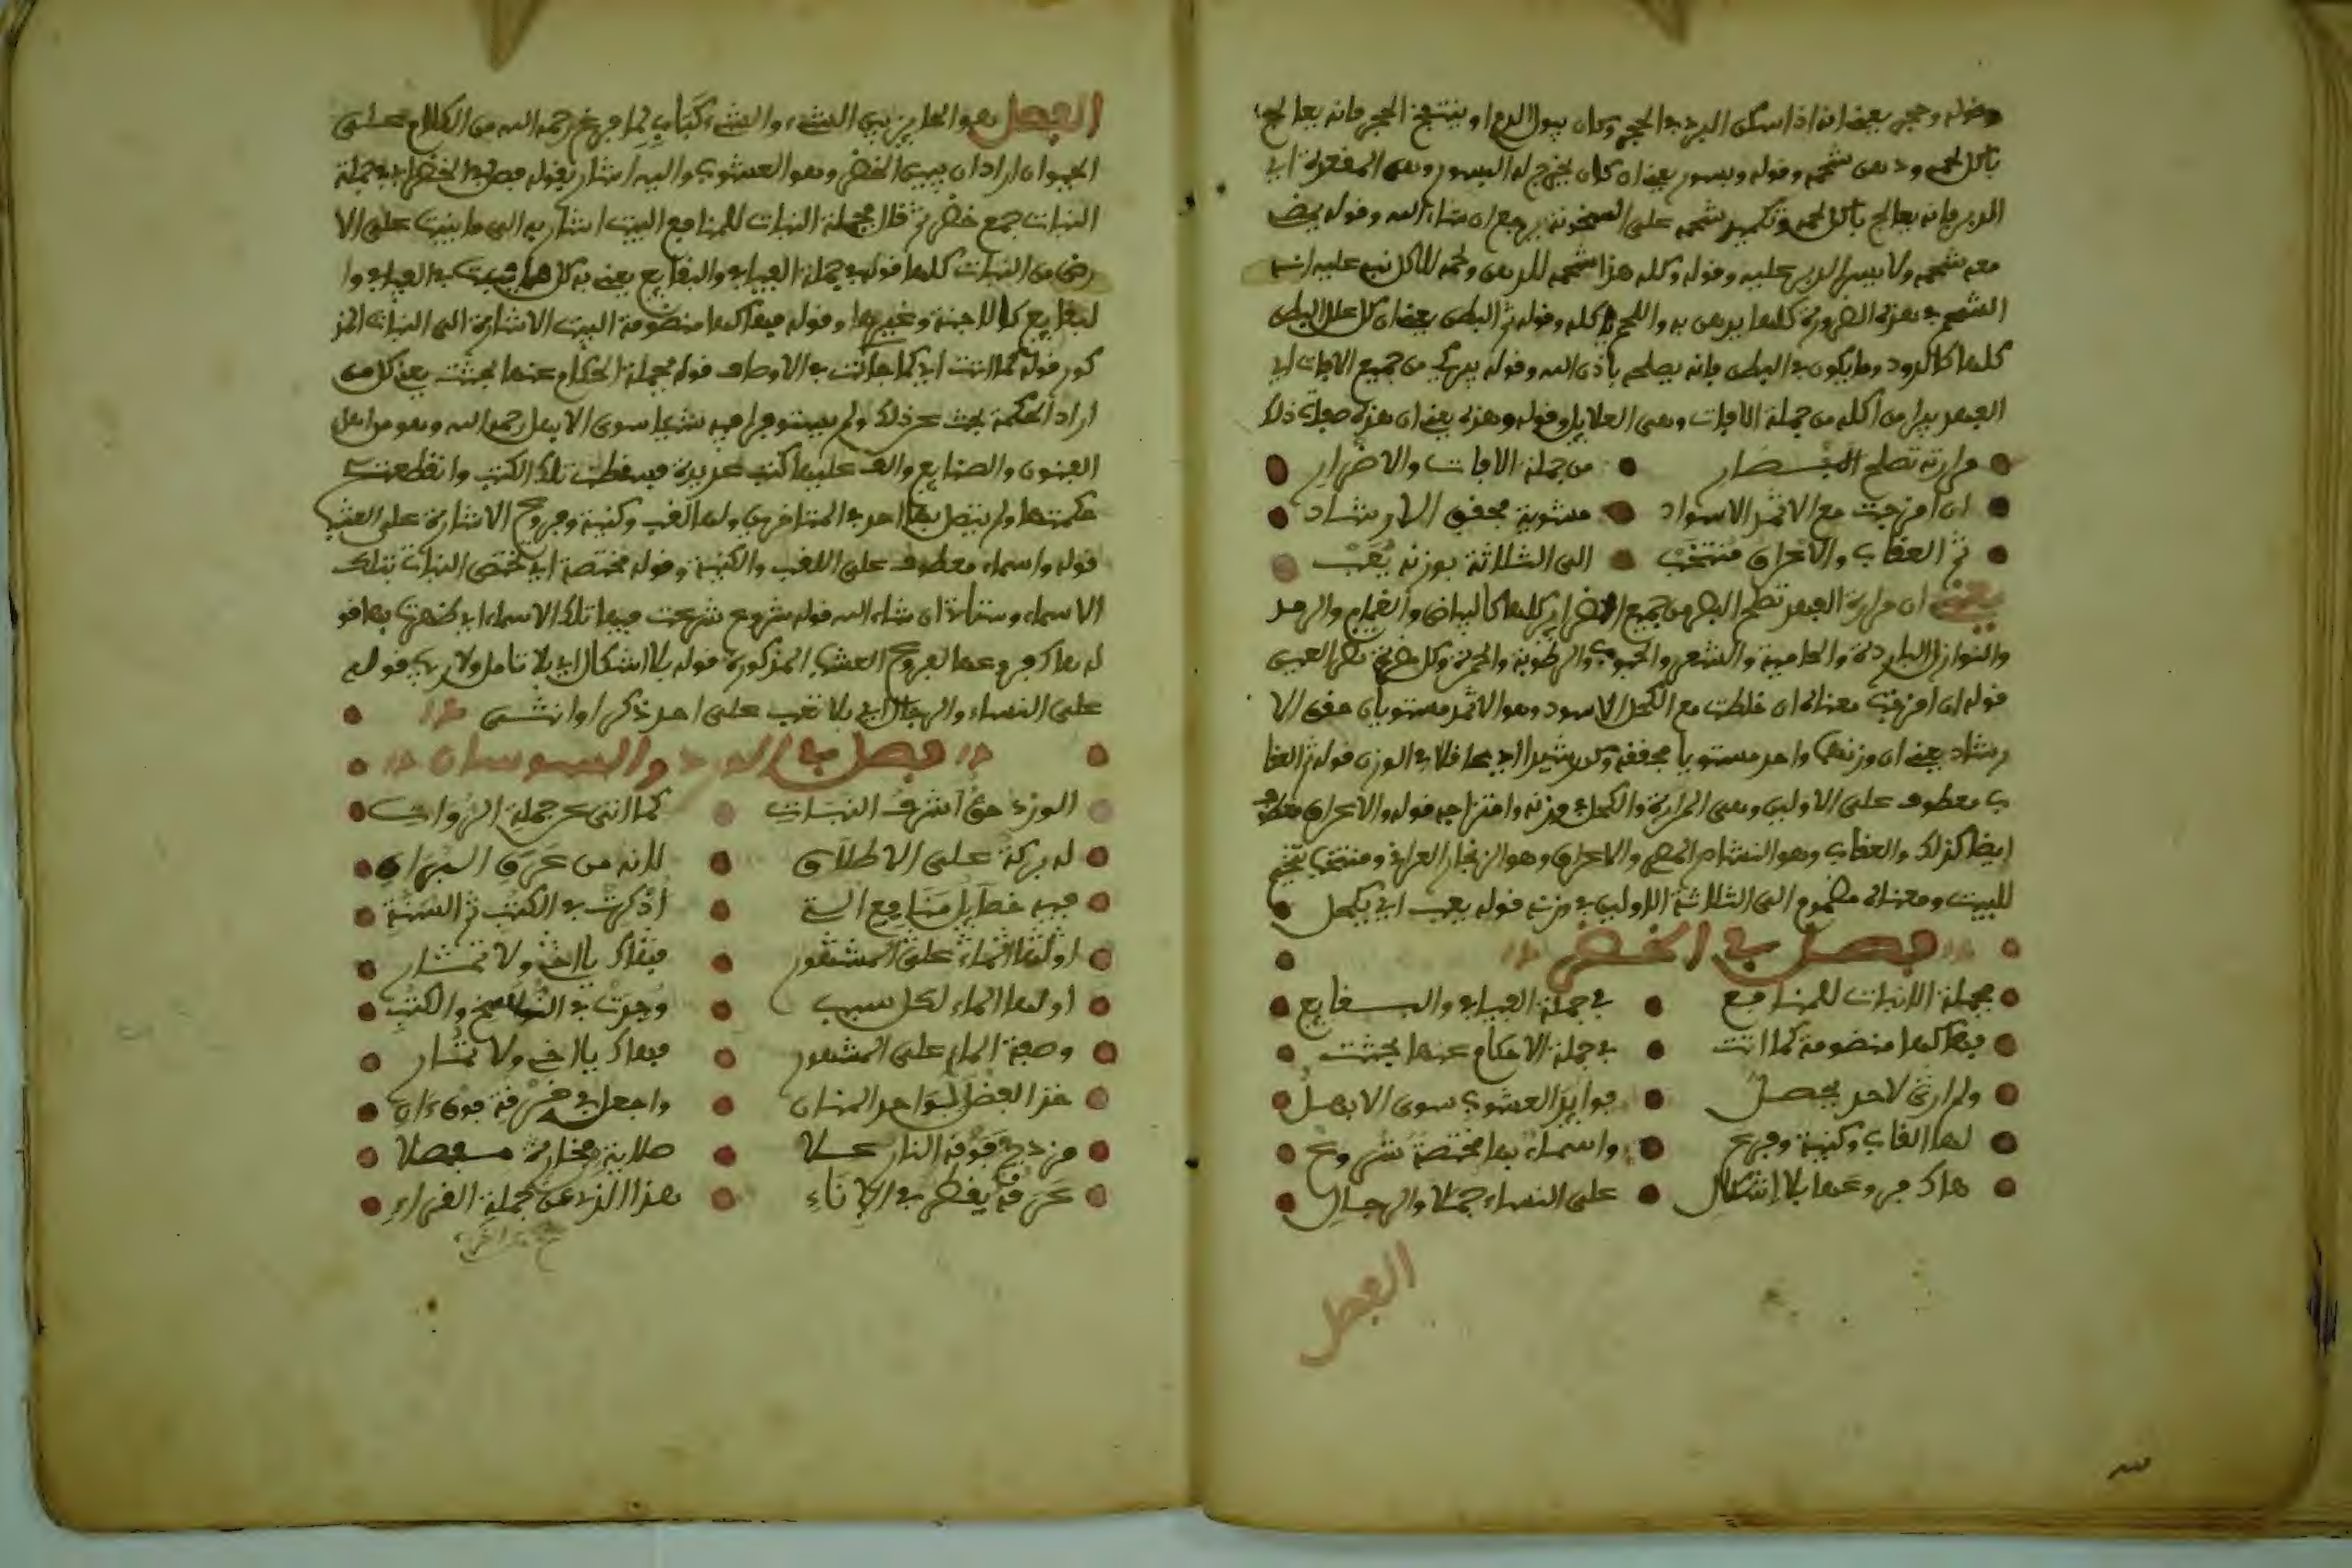 وقوله وحجر يعني انه اذا سكن البرد في الحجر وكان يبول الدم او ينتفخ الحجر فانه يعالج
باكل لحمه ودهن شحمه وقوله وبسور يعني ان كان يخرج له البسور وهي المقعدة اي
الدبر فانه يعالج باكل لحمه وتكميد شحمه على السخونة يرجع ان شاء الله وقوله
معه شحمه ولا ييبس الدبر عليه وقوله وكله هذا شحمه للدهن ولحمه للاكل نبه عليه
الشحم في هذه الضرورة كلها يدهن به واللحم ياكله وقوله ثم البطن يعني ان كل علل البطن
كلها كالدود وما يكون في البطن فانه يصلحه باذن الله وقوله يبري من جميع الافات اي
الفهد يبرا من اكله من جملة الافات وهي العلايل وقوله وهذه يعني ان هذه صفات ذلك
مرارته تصلح البصار من جملة الافات والاضرار
ان امزجت مع الاثمد الاسواد مستوية محفق الارشاد
ثم العقاب والاعراق منتخب الى الثلاثة بوزنه يغب
يعني ان مرارة الفهد تصلح البصر من جميع الاضرار كلها كالبياض والغمام والرمد
والنوازل الباردة والحامية والشعر والرطوبة والحمرة وكل
قوله ان امزجت معناه ان خلطت مع الكحل الاسود وهو الاثمد مستويان محقق الا
رشاد يعني ان وزنهما واحد مستويا محققة وكن رشيدا اي عاقلا في الوزن قوله ثم العقا
ب معطوف على الاولين وهي المرارة والكحل في وزنه وامتزاجه قوله والاعراق معطوف
ايضا كذلك والعقاب وهو النشادر والاعراق وهو الزنجار العراقي ومنتخب
للبيت ومعناه مضموم الى الثلاثة الاولين في وزنه قوله يغب اي يكحل
فصل في الخضر
بجملة النبات للمنافع في جملة الفيافي والبقايع
فهاكها منضومة كما اتت في جملة الاحكام عنها بحثت
ولم ارى لاحد يحصل فوايد العشوب سوى الابهل
لها القاب وكنية وفرع واسماء بها مختصة شروع
هاك فروعها بلا اشكال على النساء جملا والرجال
الفصل
الفصل هو الحاجز بين الشيء والشيء كتاب لما فرغ رحمه الله من الكلام على
الحيوان اراد ان يبين الخضر وهو العشوب واليه اشار بقوله فصل في الخضر اي في جملة
النبات جمع خضر ثم قال بجملة النبات للمنافع البيت اشار به الى ما ينبت على الا
رض من النبات كلها قوله في جملة الفيافي والبقايع يعني به كل ما ينبت في الفيافي وا
لبقايع كالاجنة وغيرها وقوله فهاكها منضومة البيت الاشارة الى النبات المذ
كور قوله كما اتت اي كما جاءت في الاوصاف قوله بجملة الحكام عنها بحثت يعني كل من
اراد الحكمة بحث عن ذلك ولم يستوفوا فيه شيئا سوى الابهل رحمه الله وهو من اهل
الفنون والصنايع والف عليها كتب عديدة فسقطت تلك الكتب وانقطعت
حكمتها ولم يتصل بها احد في المتاخرين ولها لقب وكنية وفروع الاشارة على العشب
قوله واسماء معطوف على اللقب والكنية وقوله مختصة اي تختص النبات بتلك
الاسماء وستاتي ان شاء الله قوله شروع شرعت فيها تلك الاسماء اي ظهرت بها قو
له هاك فروعها الفروع العشب المذكورة قوله بلا اشكال اي بلا تامل ولا ريب قوله
على النساء والرجال اي بلا تعب على احد ذكر او انثى
فصل في الورد والسوسان
الورد حق اشرف النبات كما اتى عن جملة الروات
له بركة على الاطلاق لانه من عرق البراق
فيه خصايل منافع الستة اذكرت في الكتب ثم السنة
اولها الماء على المشهور فهاك يا اخي ولا تمار
اولها الماء لكل سبب وجدت في النسخ والكتب
وصفة الماء على المشهور فهاك يا اخي ولا تمار
خذ الفضل لواحد المنان واجعل في خرقة فوق
مزدج فوقه النار علا صلابة فخارة مفصلا
عرقه يقطر في الاناء هذا الذي عن جملة القراء